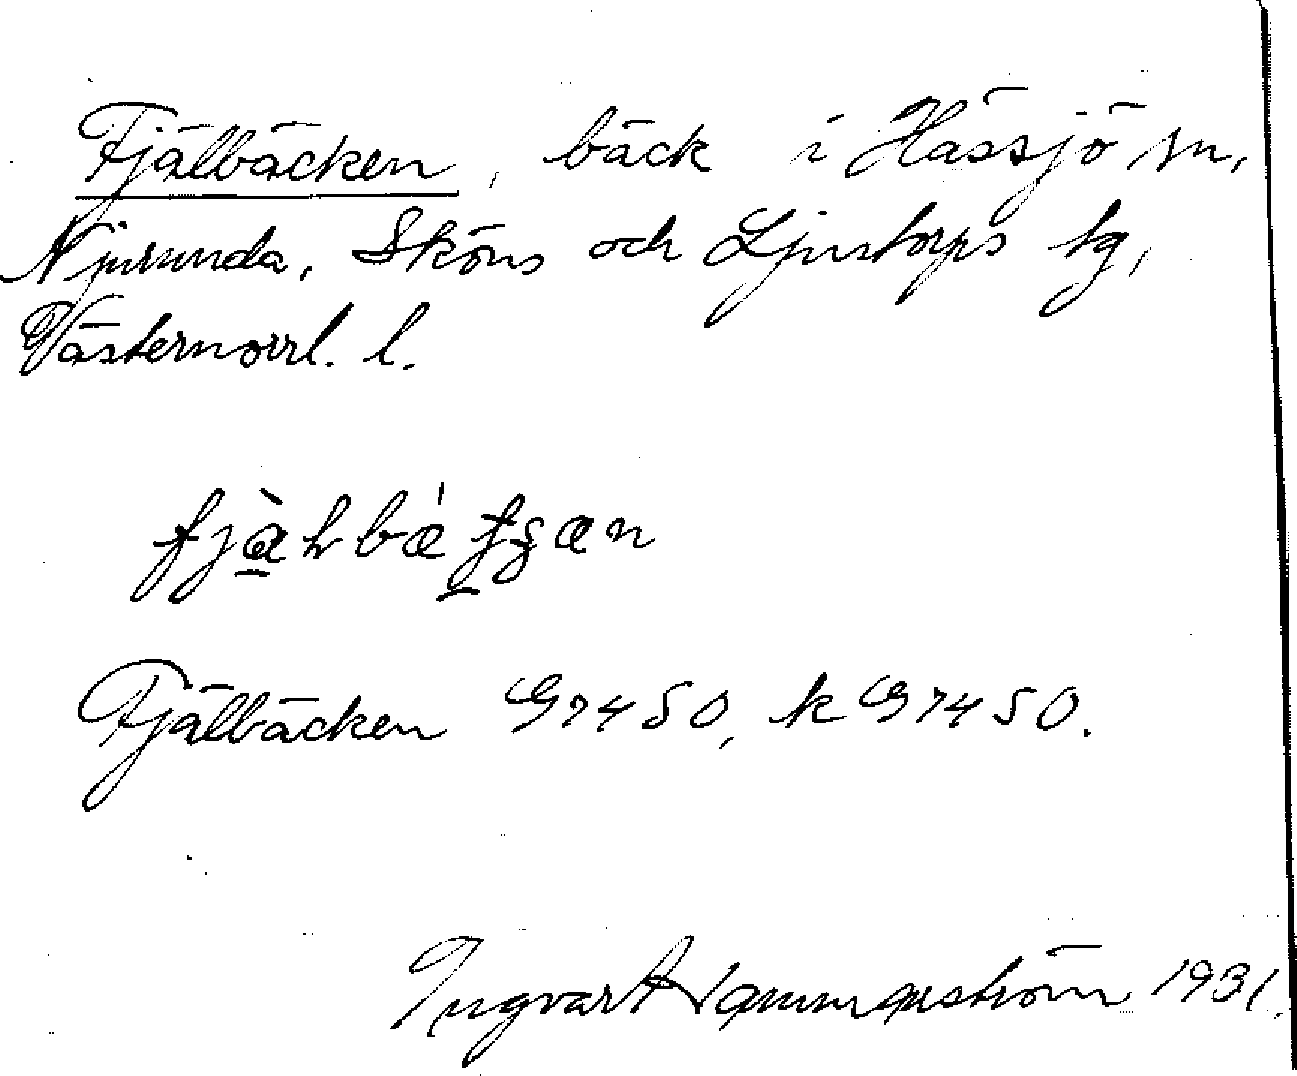 Fjälbäcken, bäck i Hässjö sn,
Njurunda, Sköns och Ljustorps tg,
Västernorrl. l.
Fjälbäcken G7450, k G7450.
Ingvar Hammarström 1931.